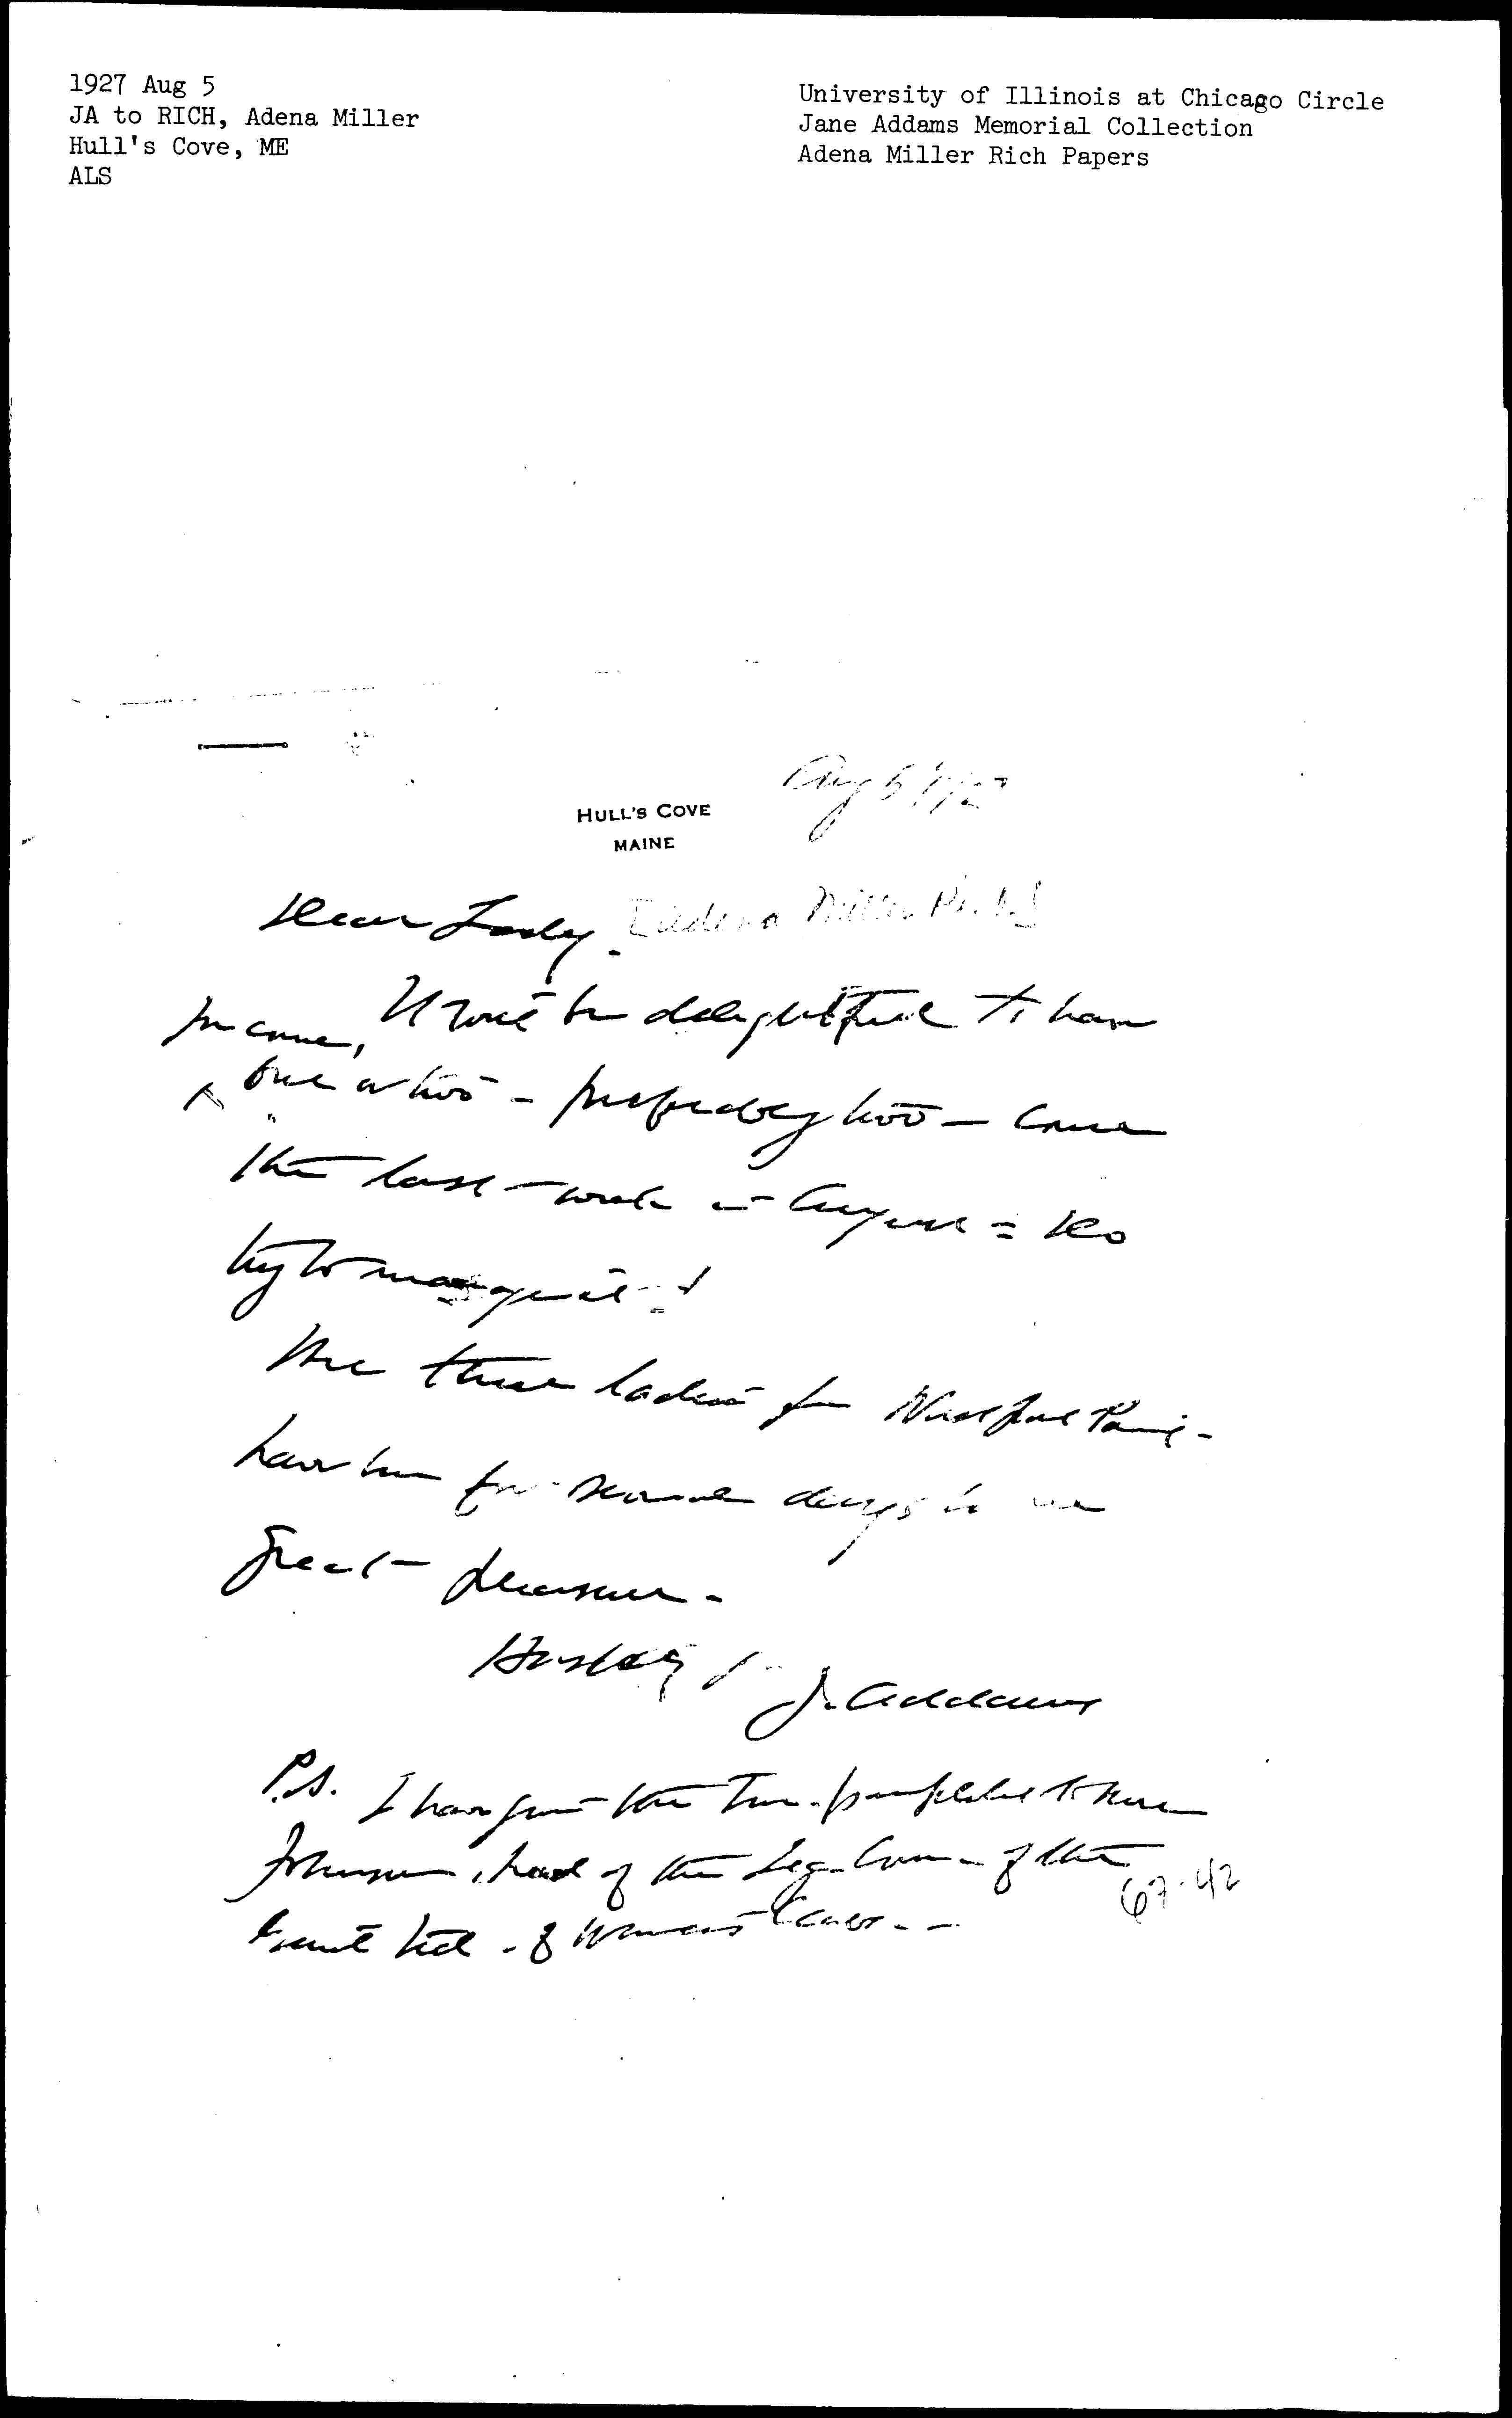 1927 Aug 5
JA to RICH, Adena Miller
Hull's Cove, ME
ALS
University of Illinois at Chicago Circle
Jane Addams Memorial Collection
Adena Miller Rich Papers
Aug 5
HULL'S COVE
MAINE
Dear Lady - [Adena Miller Rich]
It will be delightful to have
you come,
one or two - preferably two - come
the last week in August = Do
try to manage it!
The three ladies from
have been for several days to our
great pleasure -
J. Addams
P.S. I have given the two pamphlets to
Johnson, head of the Leg. Com - of the
of Women's Clubs - -
67-42